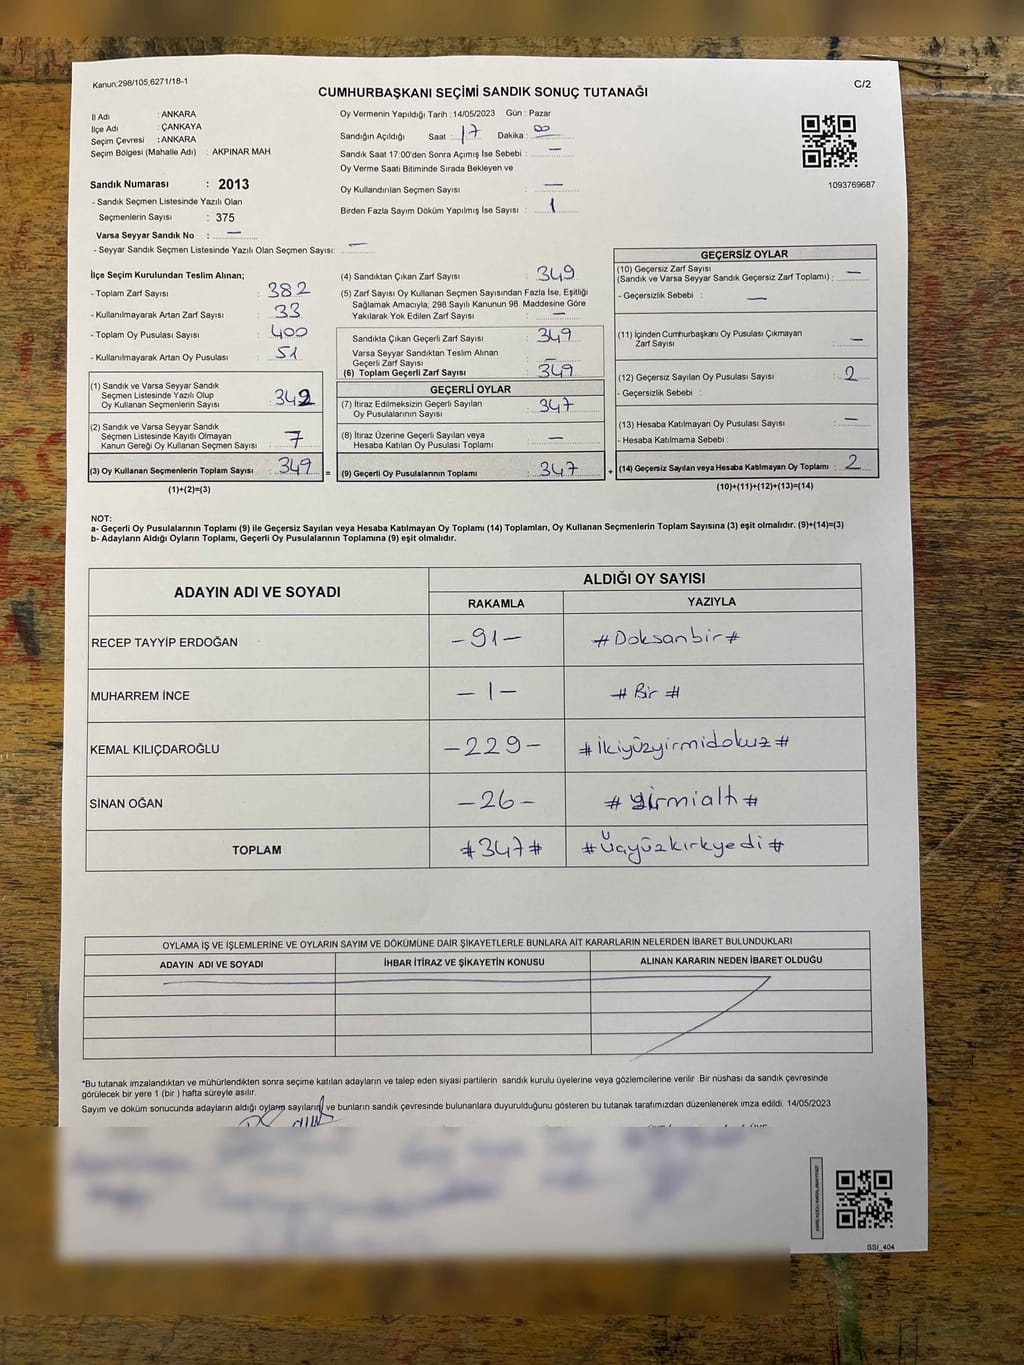 Kanun,298/105,6271/18-1
C/2
CUMHURBAŞKANI SEÇİMİ SANDIK SONUÇ TUTANAĞI
İl Adı : ANKARA
İlçe Adı : ÇANKAYA
Seçim Çevresi : ANKARA
Seçim Bölgesi (Mahalle Adı) : AKPINAR MAH.
Sandık Numarası : 2013
- Sandık Seçmen Listesinde Yazılı Olan
Seçmenlerin Sayısı : 375
Varsa Seyyar Sandık No : —
- Seyyar Sandık Seçmen Listesinde Yazılı Olan Seçmen Sayısı: —
Oy Vermenin Yapıldığı Tarih : 14/05/2023 Gün : Pazar
Sandığın Açıldığı Saat : 17 Dakika : 00
Sandık Saat 17:00'den Sonra Açımış İse Sebebi : —
Oy Verme Saati Bitiminde Sırada Bekleyen ve
Oy Kullandırılan Seçmen Sayısı : —
Birden Fazla Sayım Döküm Yapılmış İse Sayısı : 1
1093769687
İlçe Seçim Kurulundan Teslim Alınan;
- Toplam Zarf Sayısı : 382
- Kullanılmayarak Artan Zarf Sayısı : 33
- Toplam Oy Pusulası Sayısı : 400
- Kullanılmayarak Artan Oy Pusulası : 51
(1) Sandık ve Varsa Seyyar Sandık
Seçmen Listesinde Yazılı Olup
Oy Kullanan Seçmenlerin Sayısı : 342
(2) Sandık ve Varsa Seyyar Sandık
Seçmen Listesinde Kayıtlı Olmayan
Kanun Gereği Oy Kullanan Seçmen Sayısı : 7
(3) Oy Kullanan Seçmenlerin Toplam Sayısı : 349
(1)+(2)=(3)
(4) Sandıktan Çıkan Zarf Sayısı : 349
(5) Zarf Sayısı Oy Kullanan Seçmen Sayısından Fazla İse, Eşitliği
Sağlamak Amacıyla, 298 Sayılı Kanunun 98. Maddesine Göre
Yakılarak Yok Edilen Zarf Sayısı : —
Sandıkta Çıkan Geçerli Zarf Sayısı : 349
Varsa Seyyar Sandıktan Teslim Alınan
Geçerli Zarf Sayısı : —
(6) Toplam Geçerli Zarf Sayısı : 349
GEÇERLİ OYLAR
(7) İtiraz Edilmeksizin Geçerli Sayılan
Oy Pusulalarının Sayısı : 347
(8) İtiraz Üzerine Geçerli Sayılan veya
Hesaba Katılan Oy Pusulası Toplamı : —
= (9) Geçerli Oy Pusulalarının Toplamı : 347 +
GEÇERSİZ OYLAR
(10) Geçersiz Zarf Sayısı
(Sandık ve Varsa Seyyar Sandık Geçersiz Zarf Toplamı) : —
- Geçersizlik Sebebi : —
(11) İçinden Cumhurbaşkanı Oy Pusulası Çıkmayan
Zarf Sayısı : —
(12) Geçersiz Sayılan Oy Pusulası Sayısı : 2
- Geçersizlik Sebebi :
(13) Hesaba Katılmayan Oy Pusulası Sayısı : —
- Hesaba Katılmama Sebebi :
(14) Geçersiz Sayılan veya Hesaba Katılmayan Oy Toplamı : 2
(10)+(11)+(12)+(13)=(14)
NOT:
a- Geçerli Oy Pusulalarının Toplamı (9) ile Geçersiz Sayılan veya Hesaba Katılmayan Oy Toplamı (14) Toplamları, Oy Kullanan Seçmenlerin Toplam Sayısına (3) eşit olmalıdır. (9)+(14)=(3)
b- Adayların Aldığı Oyların Toplamı, Geçerli Oy Pusulalarının Toplamına (9) eşit olmalıdır.
ADAYIN ADI VE SOYADI ALDIĞI OY SAYISI
RAKAMLA YAZIYLA
RECEP TAYYİP ERDOĞAN -91- #Doksanbir#
MUHARREM İNCE -1- #Bir#
KEMAL KILIÇDAROĞLU -229- #İkiyüzyirmidokuz#
SİNAN OĞAN -26- #yirmialtı#
TOPLAM #347# #Üçyüzkırkyedi#
OYLAMA İŞ VE İŞLEMLERİNE VE OYLARIN SAYIM VE DÖKÜMÜNE DAİR ŞİKAYETLERLE BUNLARA AİT KARARLARIN NELERDEN İBARET BULUNDUKLARI
ADAYIN ADI VE SOYADI İHBAR İTİRAZ VE ŞİKAYETİN KONUSU ALINAN KARARIN NEDEN İBARET OLDUĞU
*Bu tutanak imzalandıktan ve mühürlendikten sonra seçime katılan adayların ve talep eden siyasi partilerin sandık kurulu üyelerine veya gözlemcilerine verilir. Bir nüshası da sandık çevresinde
görülecek bir yere 1 (bir ) hafta süreyle asılır.
Sayım ve döküm sonucunda adayların aldığı oyların sayıların ve bunların sandık çevresinde bulunanlara duyurulduğunu gösteren bu tutanak tarafımızdan düzenlenerek imza edildi. 14/05/2023
SSI_404